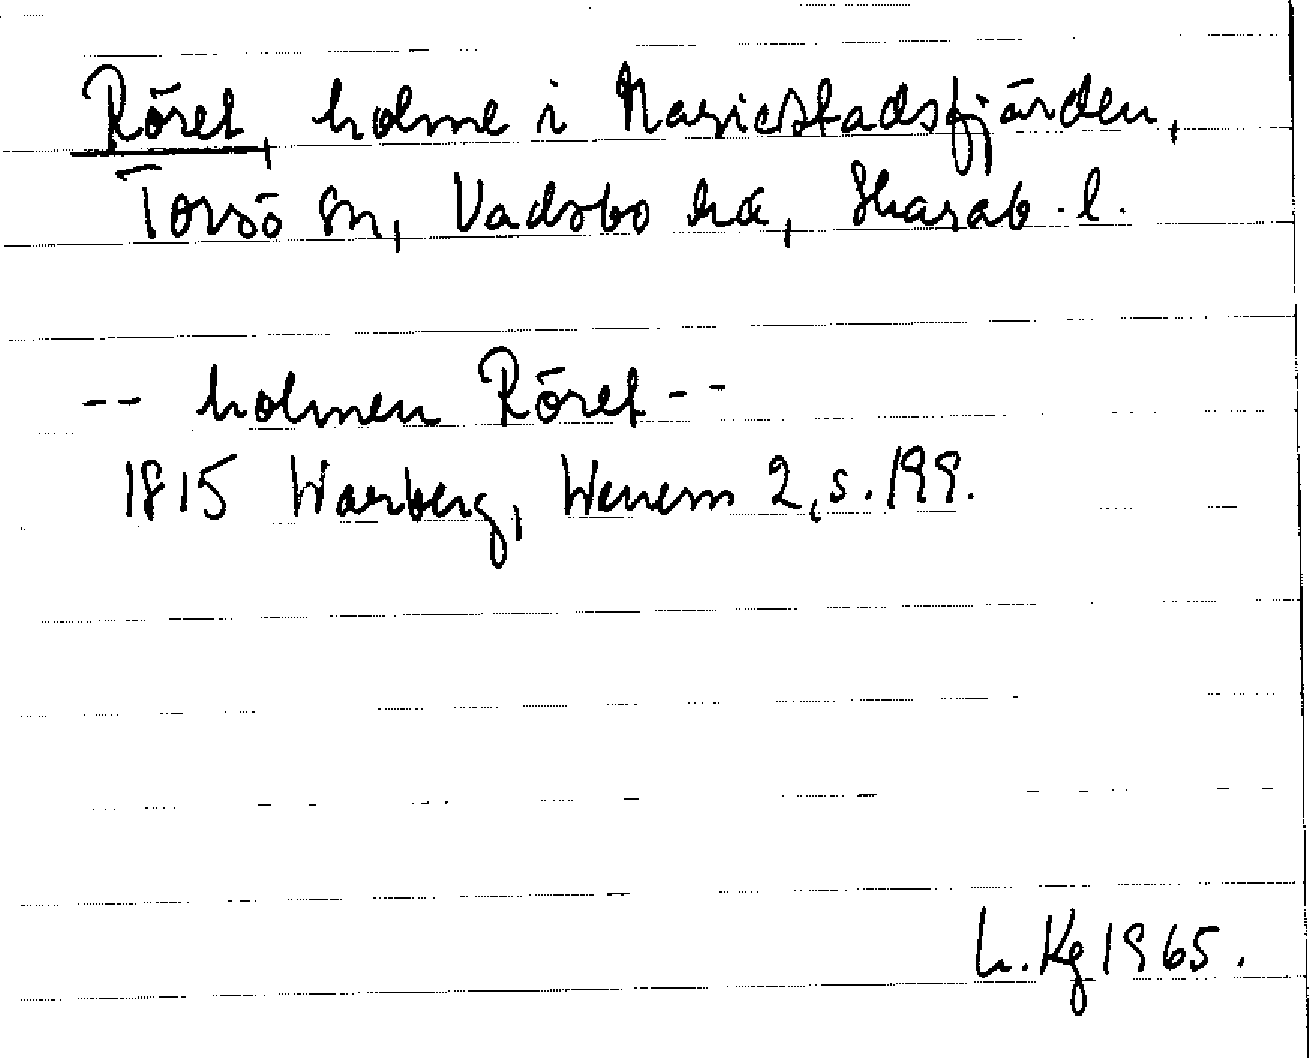 Röret, holme i Mariestadsfjärden,
Torsö sn, Vadsbo hd, Skarab. l.
-- holmen Röret --
1815 Warberg, Wenern 2, s. 199.
L. Kg 1965.